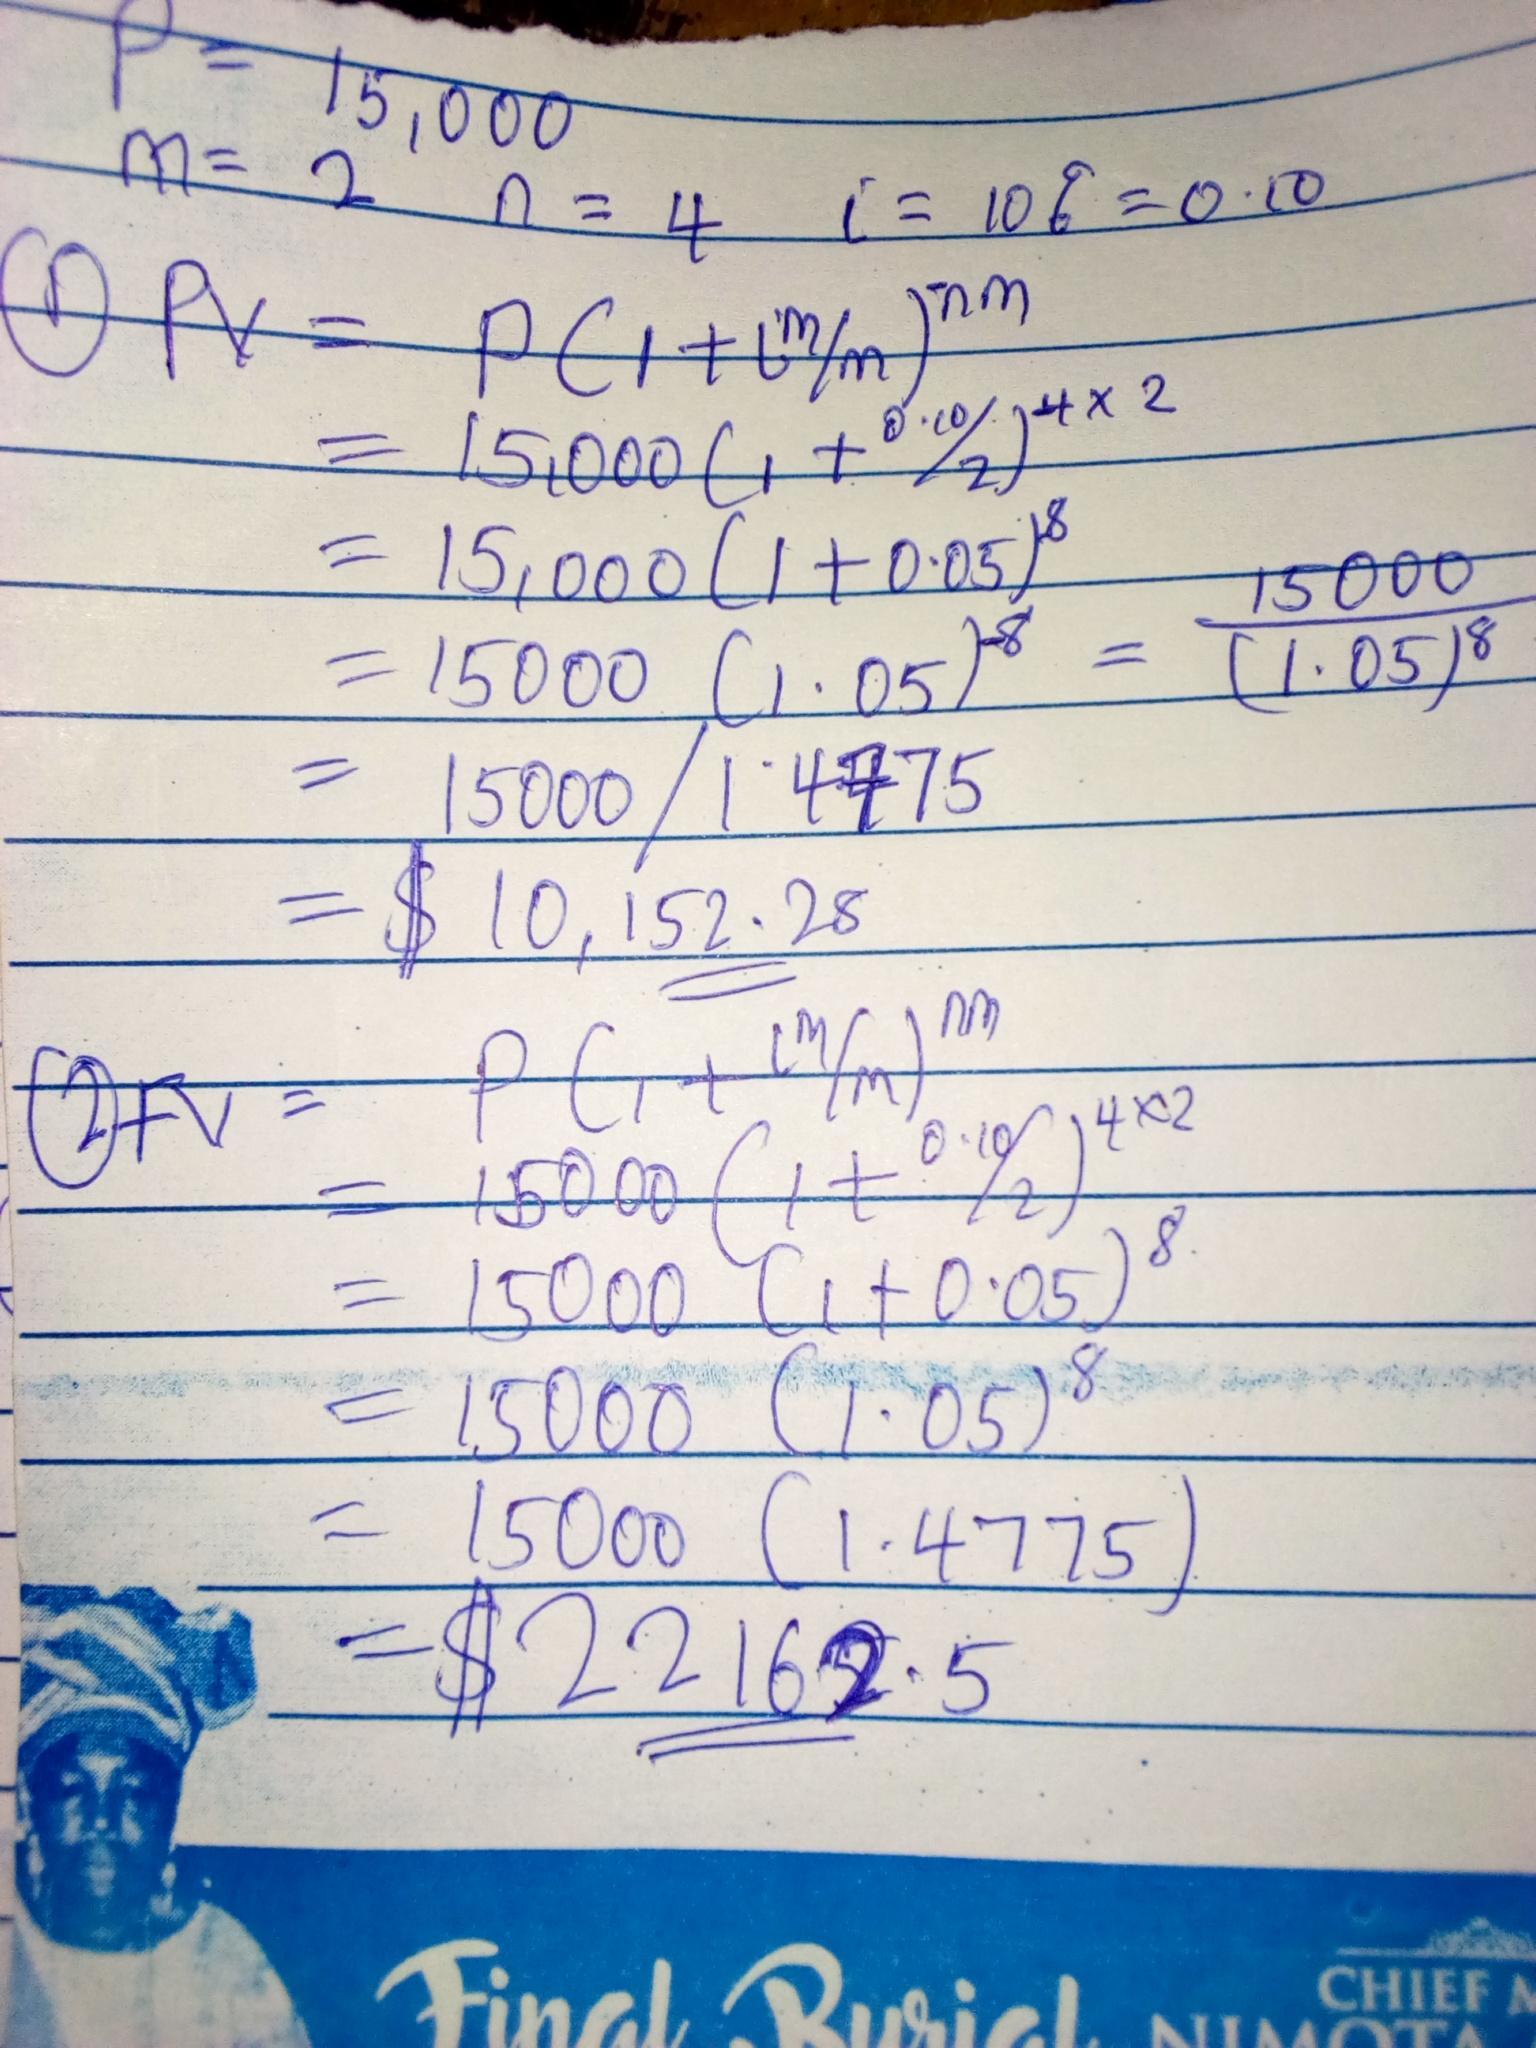 P = 15,000
m = 2 n = 4 i = 10% = 0.10
① PV = P(1 + i^m/m)^-nm
= 15,000(1 + 0.10/2)^-4×2
= 15,000(1 + 0.05)^-8
= 15000 (1.05)^-8 = 15000/(1.05)^8
= 15000/1.4775
= $10,152.28
② FV = P(1 + i^m/m)^nm
= 15000(1 + 0.10/2)^4×2
= 15000 (1 + 0.05)^8
= 15000 (1.05)^8
= 15000 (1.4775)
= $22162.5
Final Burial
CHIEF
NIMOTA